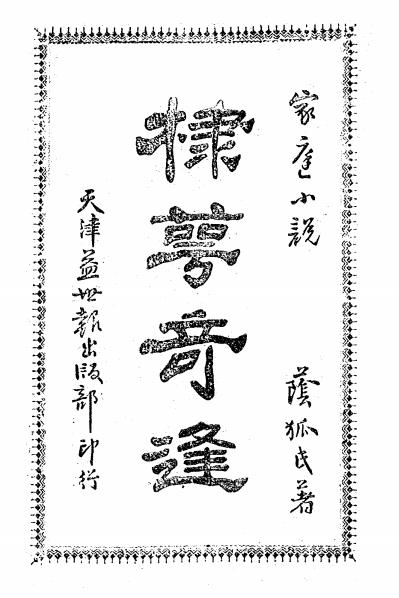 家庭小說 蔭狐氏著
棣萼奇逢
天津益世報出版部印行